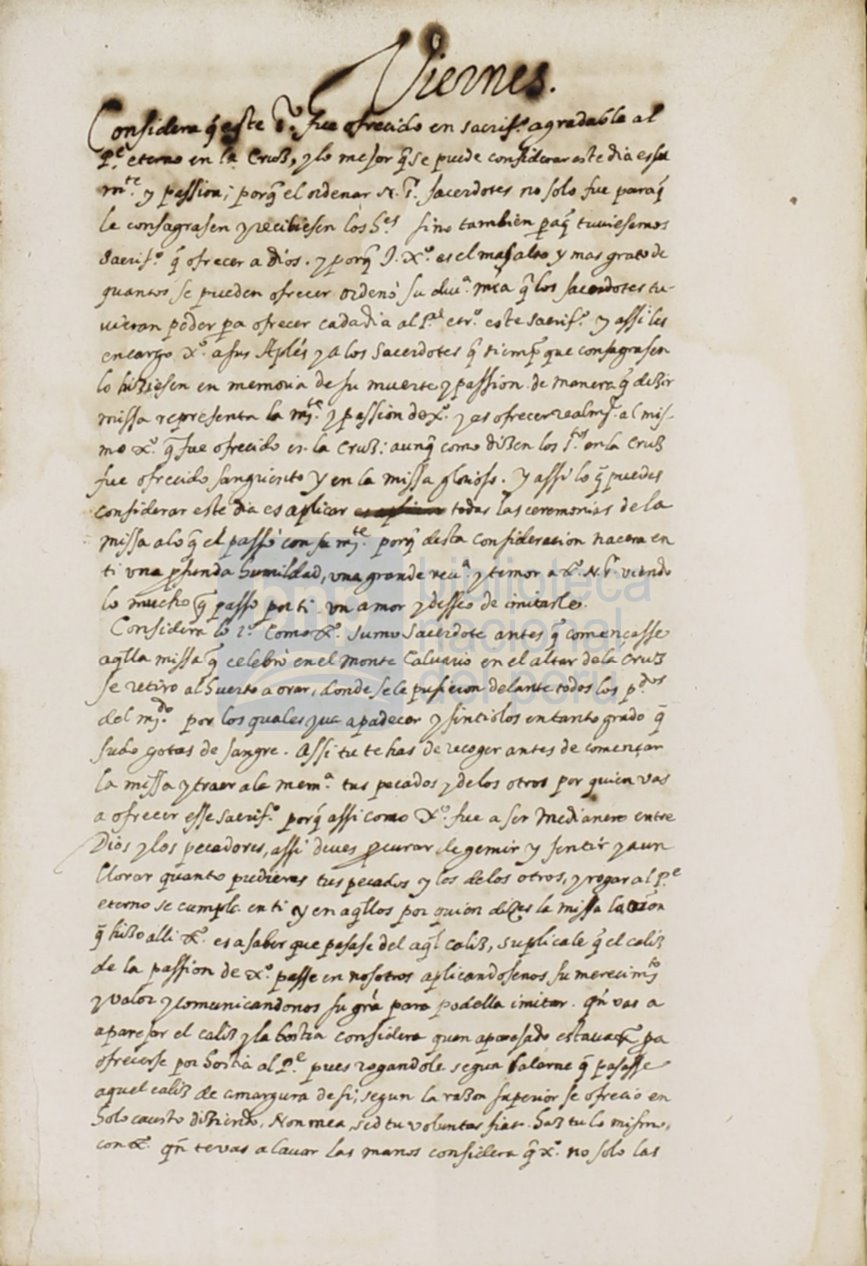 Viernes.
Considera q̃ este S.r fue ofrecido en sacrif.o agradable al
P.e eterno en la Cruz, y lo mejor q̃ se puede considerar este dia es su
m.te y passion; porq̃ el ordenar N. S.r sacerdotes no solo fue paraq̃
le consagrasen y recibiesen los h.es sino tambien paq̃ tuviesemos
sacrif.o q̃ ofrecer a Dios. y porq̃ J. X.o es el mas alto y mas grato de
quantos se pueden ofrecer ordenò su divi.a mĩa q̃ los sacerdotes tu-
vieran poder pa ofrecer cada dia al P.e etr.o este sacrif.o y assi les
encargo X.o a sus Aplẽs y a los Sacerdotes q̃ tiemp̃ que consagrasen
lo hiziesen en memoria de su muerte y passion de manera q̃ dezir
missa representa la m.te y passion de X.o y es ofrecer realm.te al mis-
mo X.o q̃ fue ofrecido en la Cruz: aunq̃ como dizen los S.tos en la Cruz
fue ofrecido sangriento y en la missa glorioso. y assi lo q̃ puedes
considerar este dia es aplicar todas las ceremonias de la
missa a lo q̃ el passò con su m.te porq̃ desta consideracion nacera en
ti una p̃funda humildad, una grande rev.a y temor a X.o N. S.r viendo
lo mucho q̃ passo por ti un amor y desseo de imitarle.
Considera lo 1.o Como X.o sumo sacerdote antes q̃ començasse
aq̃lla missa q̃ celebrò en el monte Calvario en el altar de la Cruz
se retiro al huerto a orar, donde se le pusieron delante todos los p.dos
del m.do por los quales yva a padecer y sintiolos en tanto grado q̃
sudo gotas de sangre. Assi tu te has de recoger antes de començar
la missa y traer a la mem.a tus pecados y de los otros por quien vas
a ofrecer esse sacrif.o porq̃ assi como X.o fue a ser medianero entre
Dios y los pecadores, assi deves p̃curar de gemir y sentir y aun
llorar quanto pudieres tus pecados y los de los otros, y rogar al P.e
eterno se cumpla en ti y en aq̃llos por quien dizes la missa la orõn
q̃ hizo alli X.o es a saber que pasase del aq̃l caliz, suplicale q̃ el caliz
de la passion de X.o passe en nosotros aplicandosenos su merecim.to
y valor y comunicandonos su grã para podella imitar. qñ vas a
aparejar el caliz y la hostia considera quan aparejado estava X.o pa
ofrecerse por hostia al P.e pues rogandole segun la carne q̃ pasasse
aquel caliz de amargura de si; segun la razon superior se ofrecio en
holocausto diziendo, Non mea, sed tu voluntas fiat. haz tu lo mismo,
con X.o qñ te vas a lavar las manos considera q̃ X.o no solo las
biblioteca
nacional
del perú